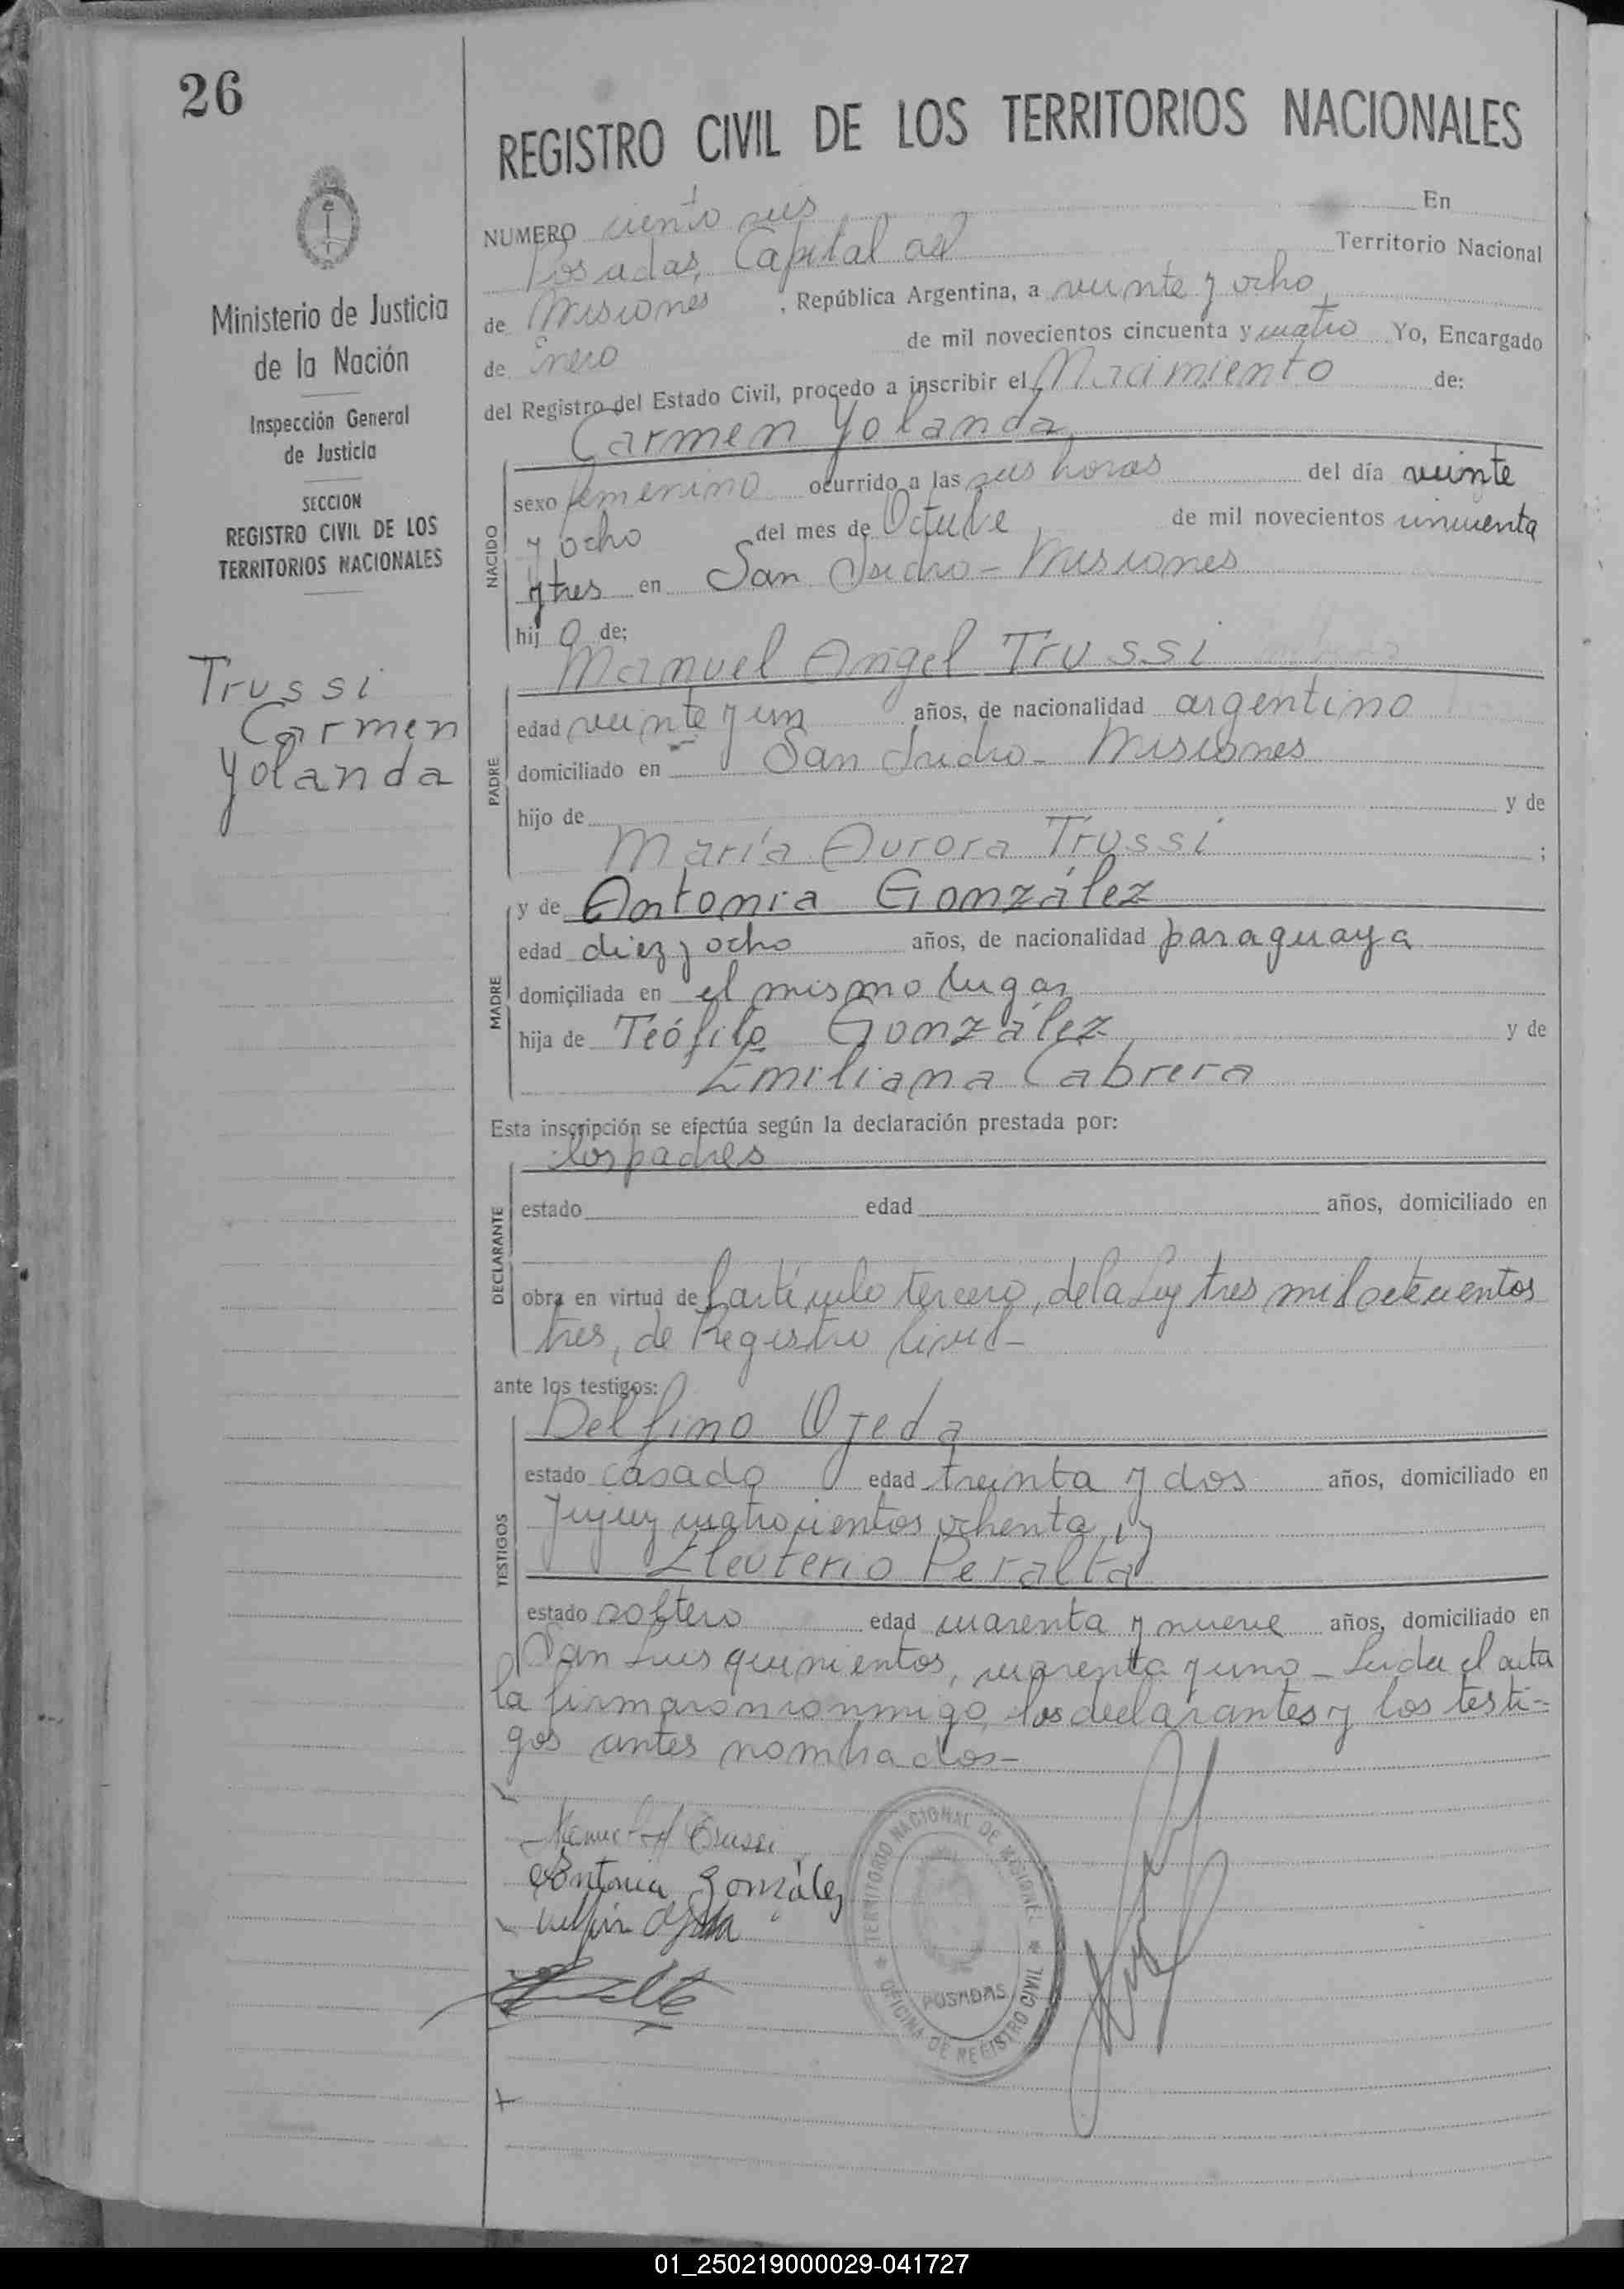 26
REGISTRO CIVIL DE LOS TERRITORIOS NACIONALES
NUMERO ciento seis En
Posadas, Capital del Territorio Nacional
de Misiones , República Argentina, a veinte y ocho
de Enero de mil novecientos cincuenta y cuatro Yo, Encargado
del Registro del Estado Civil, procedo a inscribir el Nacimiento de:
Carmen Yolanda
NACIDO
sexo femenino ocurrido a las seis horas del día veinte
y ocho del mes de Octubre, de mil novecientos cincuenta
y tres en San Isidro - Misiones
hij a de:
Manuel Angel Trussi
PADRE
edad veinte y un años, de nacionalidad argentino
domiciliado en San Isidro - Misiones
hijo de y de
María Aurora Trussi ;
MADRE
y de Antonia González
edad diez y ocho años, de nacionalidad paraguaya
domiciliada en el mismo lugar
hija de Teófilo González y de
Emiliana Cabrera
Esta inscripción se efectúa según la declaración prestada por:
los padres
DECLARANTE
estado edad años, domiciliado en
obra en virtud del artículo tercero, de la Ley tres mil setecientos
tres, de Registro Civil -
ante los testigos:
Delfino Ojeda
TESTIGOS
estado casado edad treinta y dos años, domiciliado en
Jujuy cuatrocientos ochenta, y
Eleuterio Peralta
estado soltero edad cuarenta y nueve años, domiciliado en
San Luis quinientos, cuarenta y uno - Leida el acta
la firmaron conmigo, los declarantes y los testi=
gos antes nombrados -
Manuel A Trussi
Antonia González
Delfin Ojeda
TERRITORIO NACIONAL DE MISIONES
POSADAS
OFICINA DE REGISTRO CIVIL
Ministerio de Justicia
de la Nación
Inspección General
de Justicia
SECCION
REGISTRO CIVIL DE LOS
TERRITORIOS NACIONALES
Trussi
Carmen
Yolanda
01_250219000029-041727